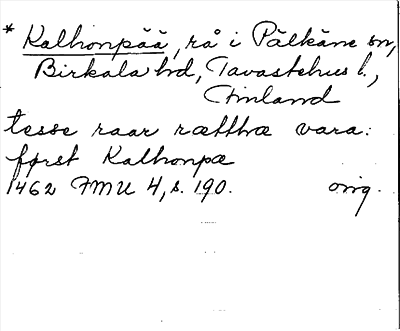 * Kalhonpää, rå i Pälkäne sn,
Birkala hd, Tavastehus l.,
Finland
tesse raar rættha vara:
først Kalhonpæ
1462 FMU 4, s. 190. orig.